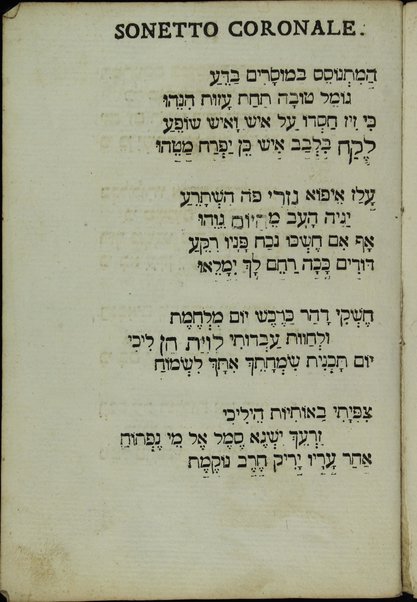 SONETTO CORONALE.
הַמִּתְנוֹסֵס בְּמוֹסָרִים בַּדֵּעַ
גּוֹמֵל טוֹבָה תַּחַת עַזּוּת הִנֵּהוּ
כִּי זִיז חַסְדוֹ עַל אִישׁ וָאִישׁ שׁוֹפֵעַ
לֶקַח בִּלְבַב אִישׁ כֵּן יַפְרַח מַטֵּהוּ
עֲלֹז אֵיפוֹא נִזְרִי פֹה הִשְׂתָּרֵעַ
יַגִּיהַּ הָעָב
אַף אִם חָשְׁכוּ נֹכַח פָּנָיו רִקַּע
דּוֹרִים כָּכָה רַחַם לָךְ יִמָּלֵאוּ
חֶשְׁקִי דָהַר כַּרֶכֶשׁ יוֹם מִלְחֶמֶת
וּלְחַוּוֹת עַבְדוּתִי לִוְיַת הֵן לִיכִי
יוֹם תַּבְנִית שִׂמְחָתֵךְ אִתָּךְ לִשְׂמוֹחַ
צִפִּיתִי בְּאוֹתִיּוֹת הֵילִיכִי
זַרְעֵךְ יִשְׂנָא סֶמֶל אֶל מֵי נֶפְתּוֹחַ
אַחַר עָרָיו יָרִיק חֶרֶב נוֹקֶמֶת